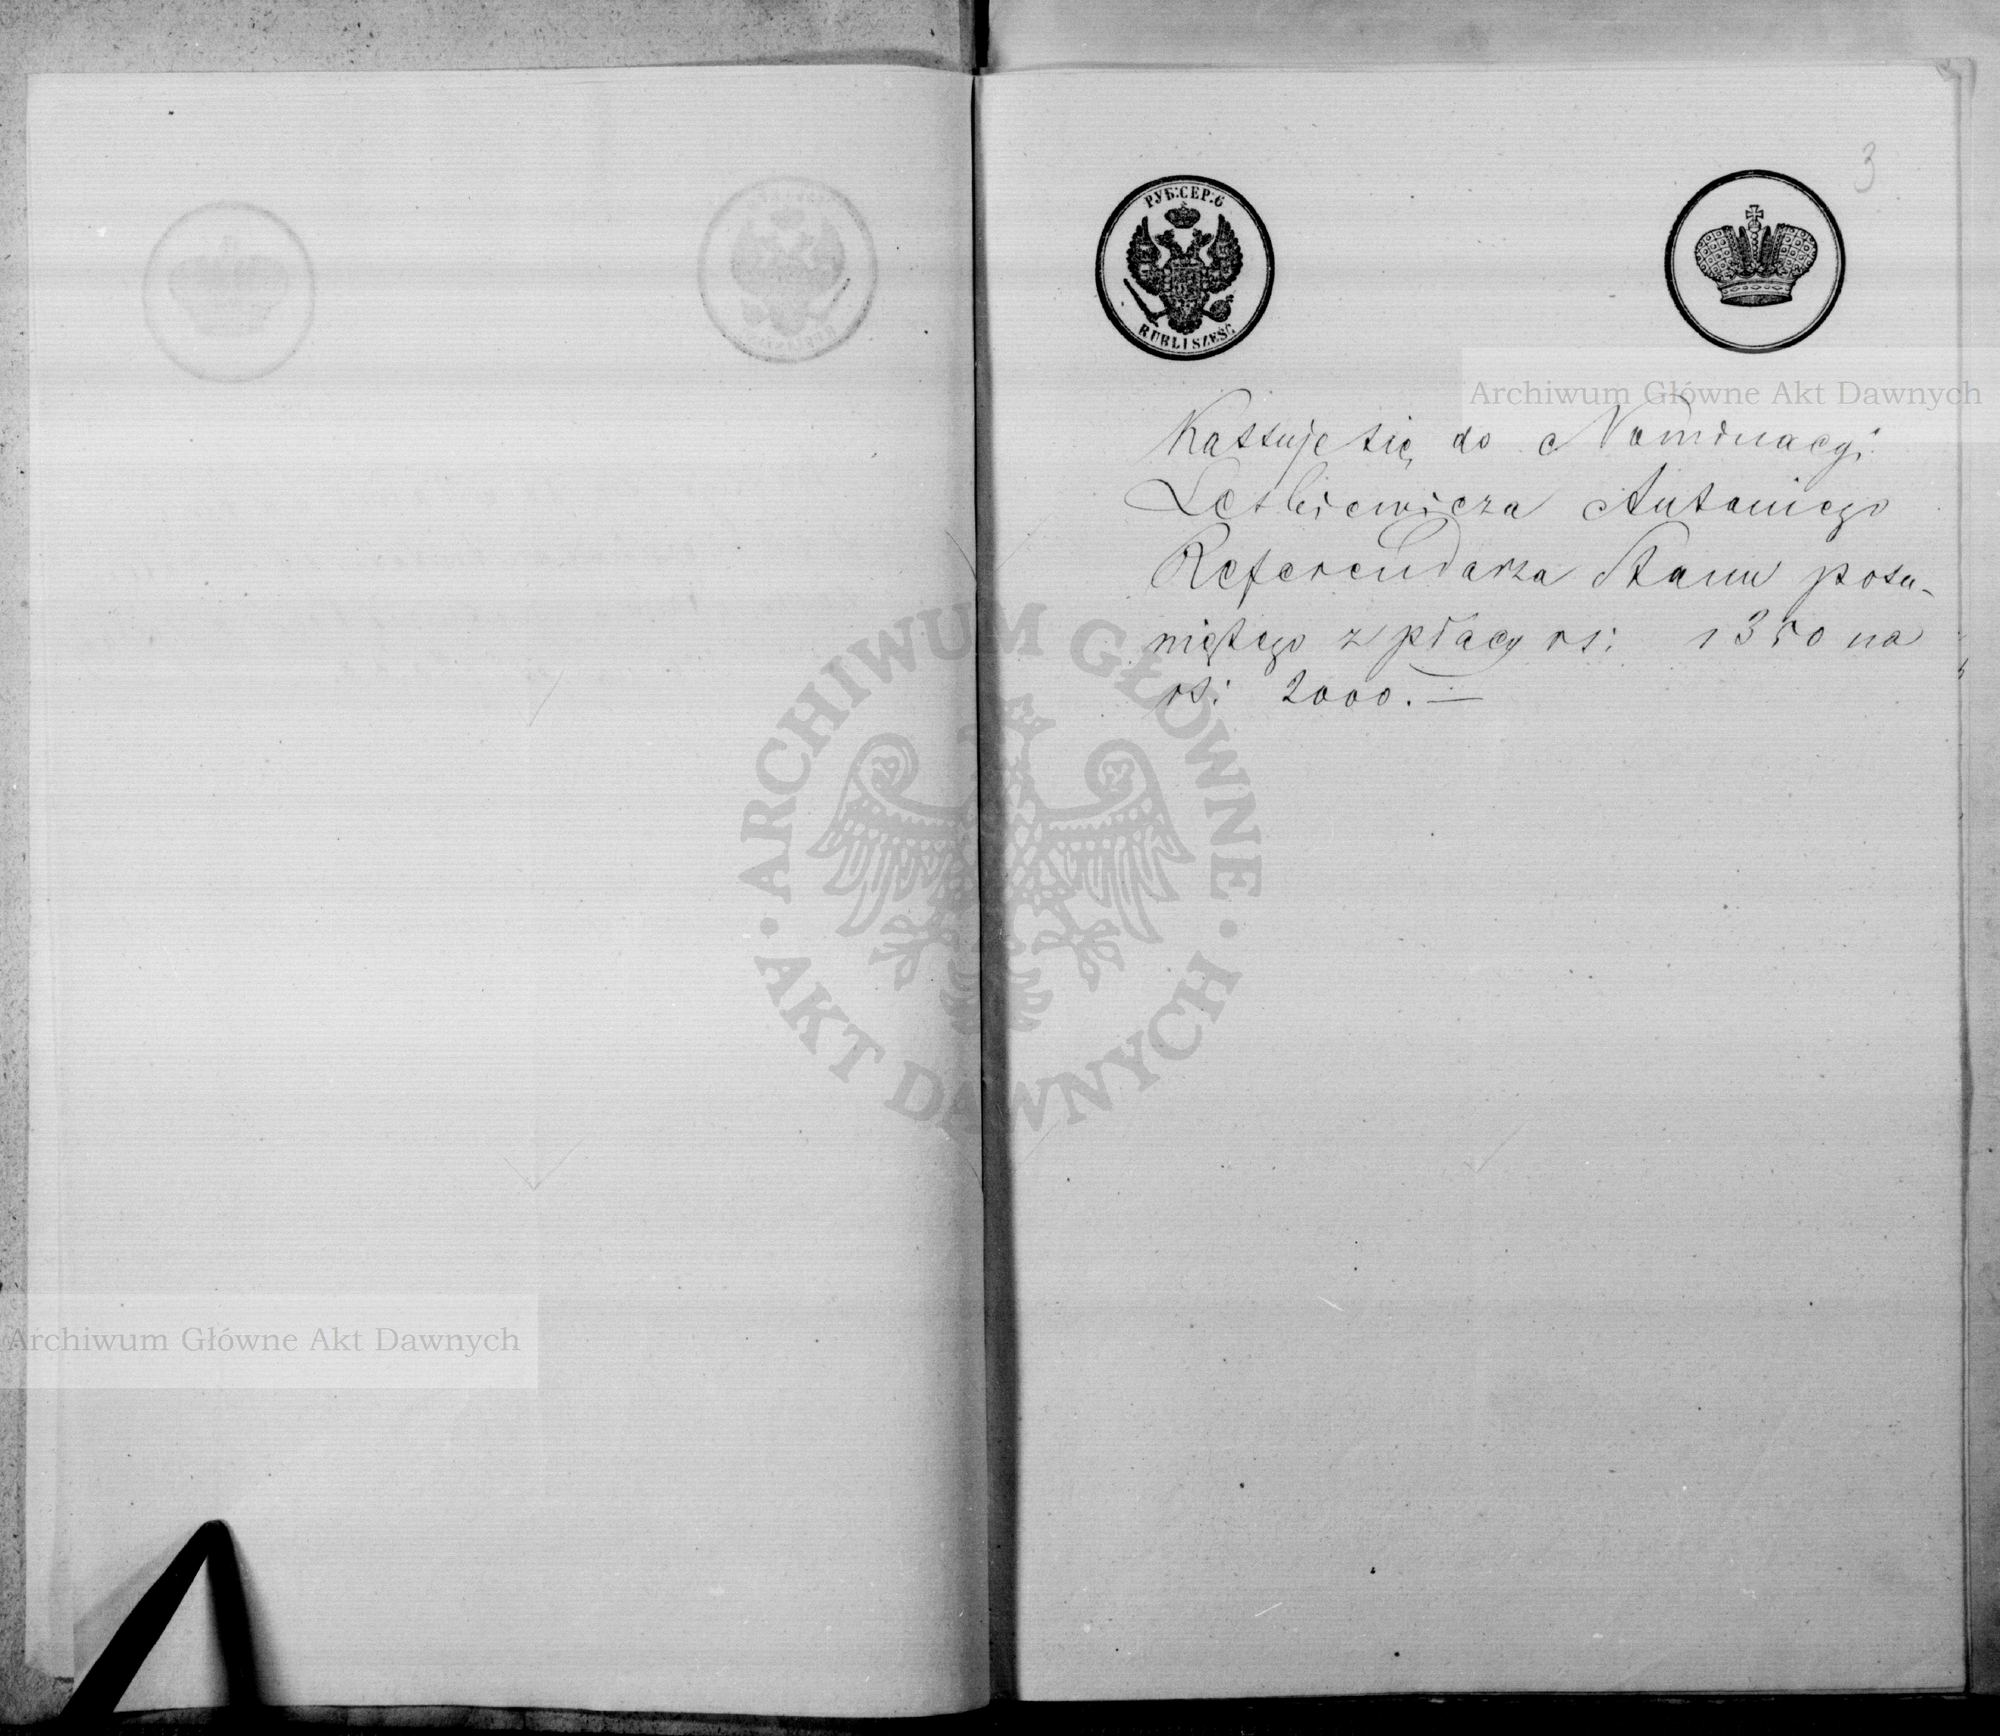 3
РУБ:СЕР:6
RUBLI SZEŚĆ
Archiwum Główne Akt Dawnych
Kassuje się do Nominacyi
Leśkiewicza Antoniego
Referendarza Stanu posu-
niętego z płacy rs: 1350 na
rs: 2000. —
ARCHIWUM GŁÓWNE
AKT DAWNYCH
Archiwum Główne Akt Dawnych